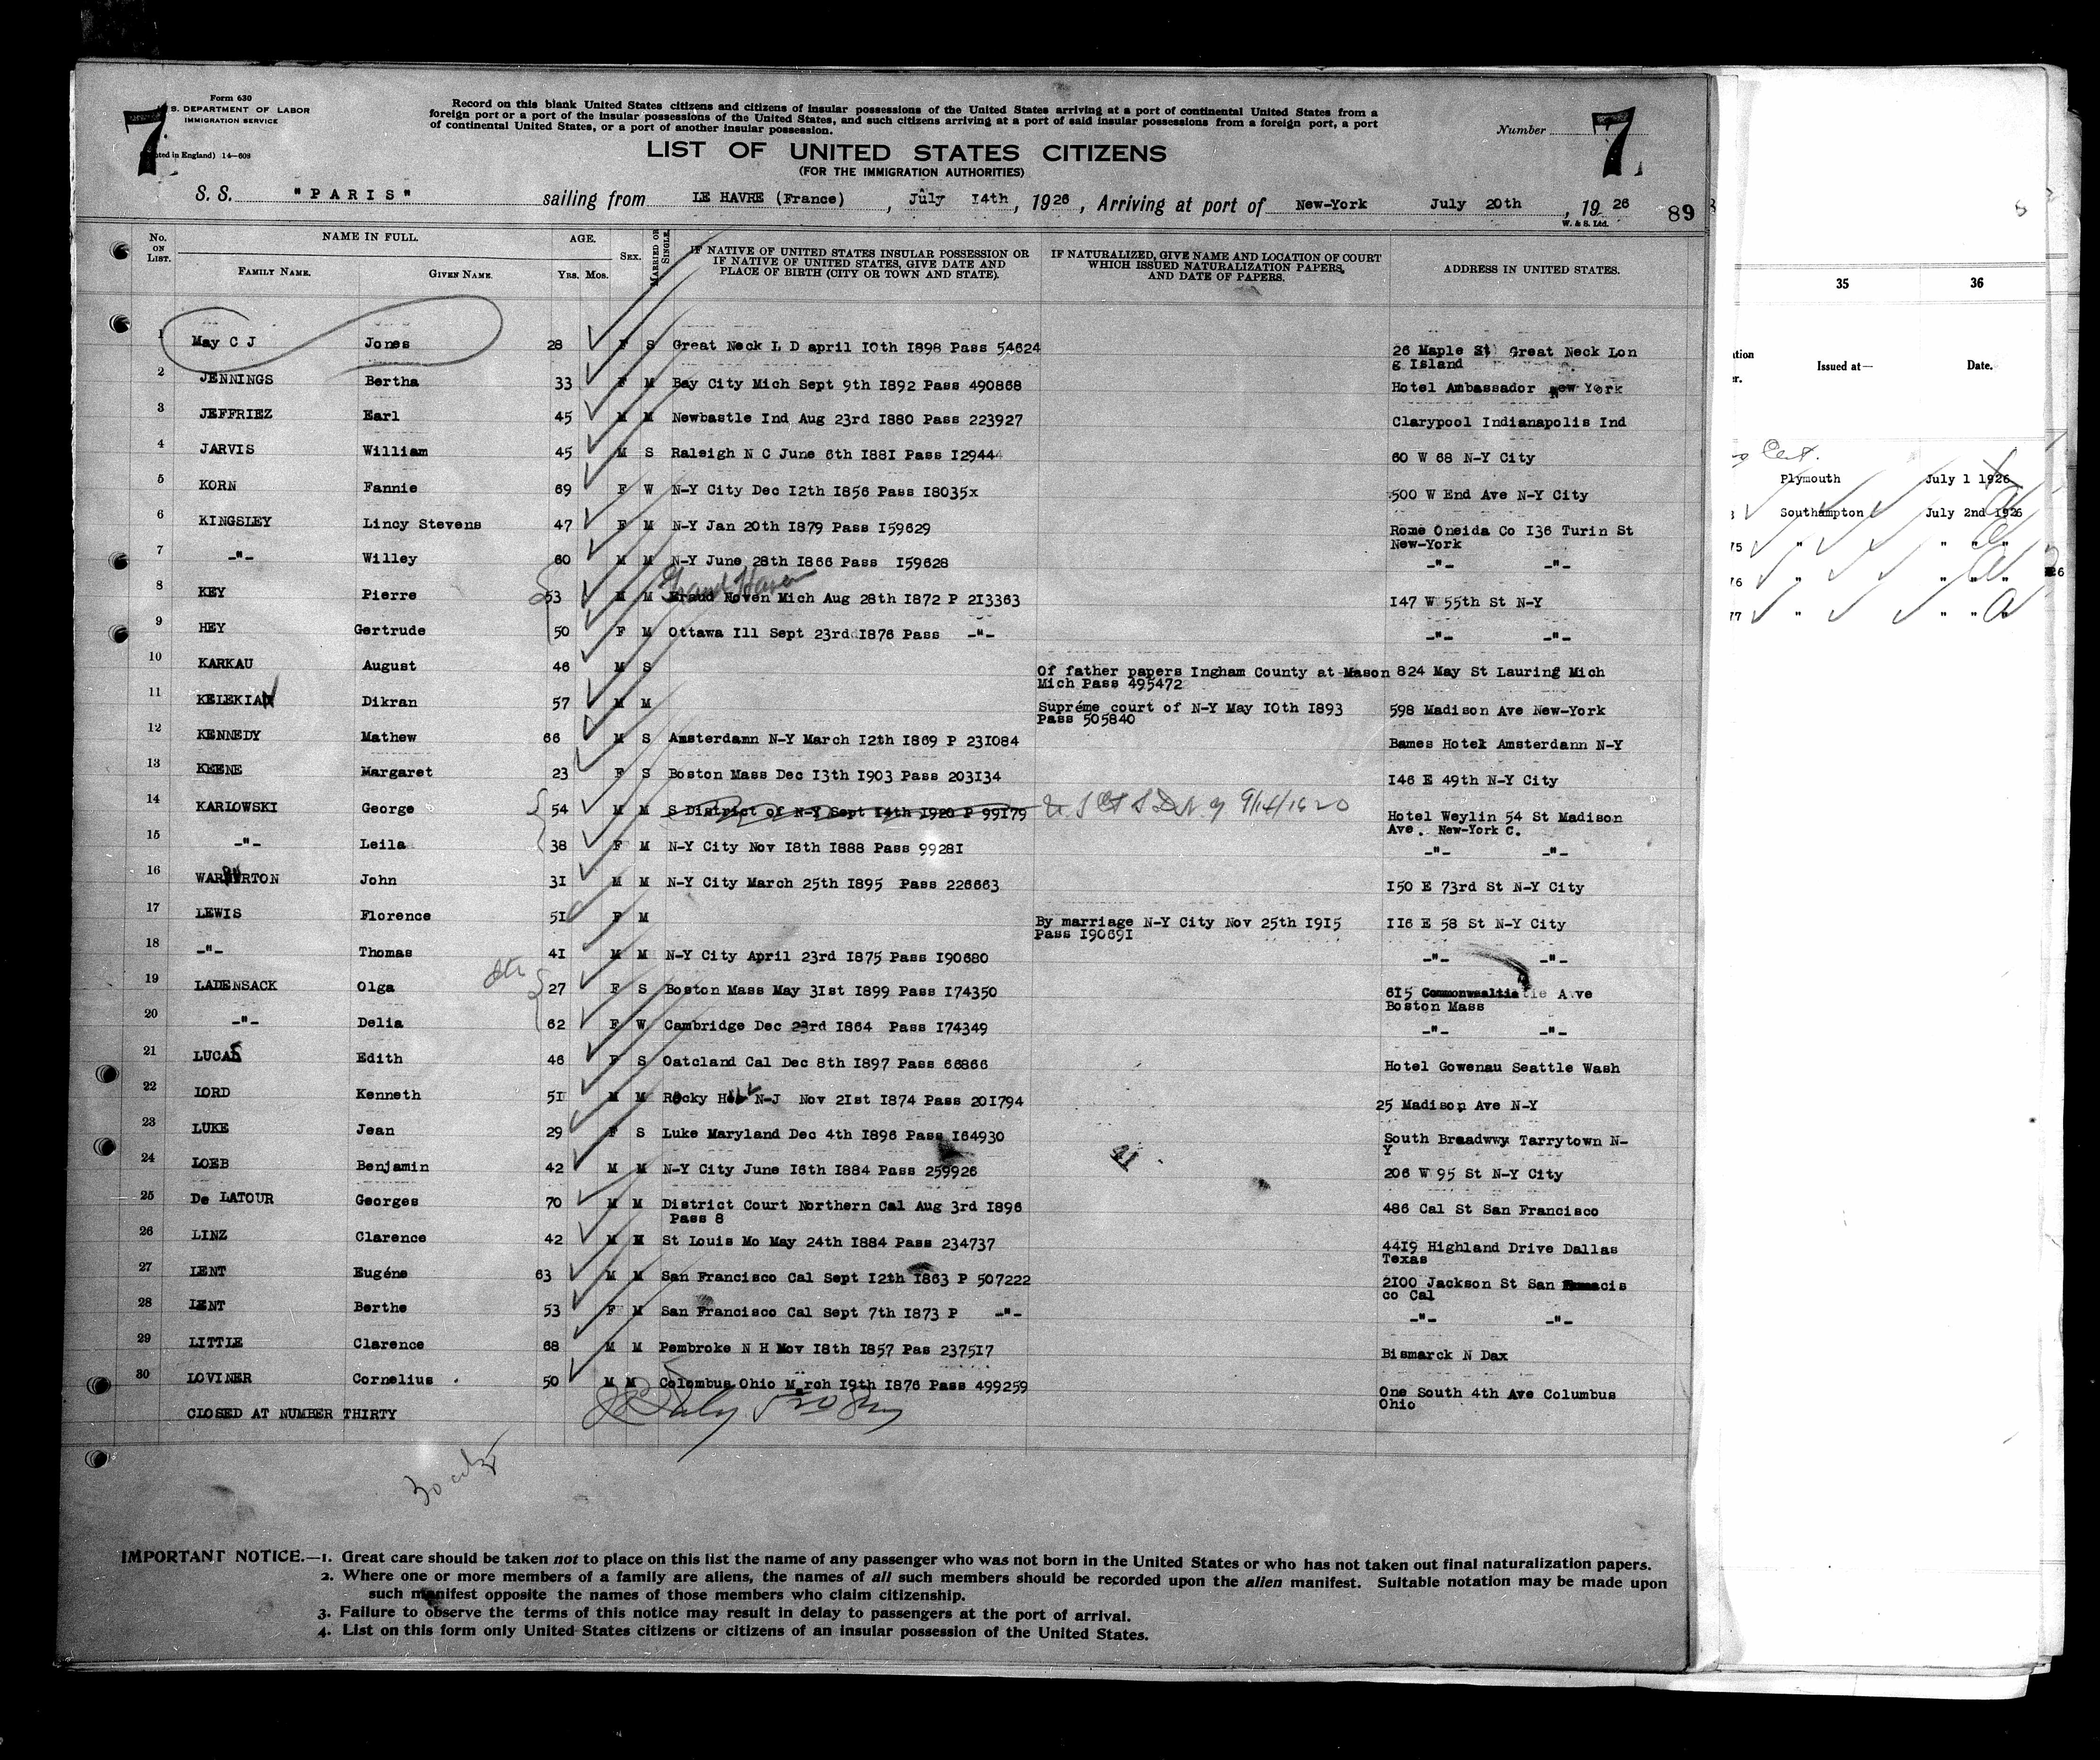 Form 630
S. DEPARTMENT OF LABOR
IMMIGRATION SERVICE
(Printed in England) 14—608
7
Record on this blank United States citizens and citizens of insular possessions of the United States arriving at a port of continental United States from a
foreign port or a port of the insular possessions of the United States, and such citizens arriving at a port of said insular possessions from a foreign port, a port
of continental United States, or a port of another insular possession.
Number 7
LIST OF UNITED STATES CITIZENS
(FOR THE IMMIGRATION AUTHORITIES)
S. S. "PARIS" sailing from LE HAVRE (France), July 14th, 1926, Arriving at port of New-York July 20th, 1926
W. & S. Ltd.
89
No. ON LIST. NAME IN FULL. FAMILY NAME. GIVEN NAME. AGE. YRS. MOS. SEX. MARRIED OR SINGLE. IF NATIVE OF UNITED STATES INSULAR POSSESSION OR IF NATIVE OF UNITED STATES, GIVE DATE AND PLACE OF BIRTH (CITY OR TOWN AND STATE). IF NATURALIZED, GIVE NAME AND LOCATION OF COURT WHICH ISSUED NATURALIZATION PAPERS, AND DATE OF PAPERS. ADDRESS IN UNITED STATES.
1 May C J Jones 28 F S Great Neck L D april 10th 1898 Pass 54624 26 Maple St Great Neck Lon
g Island
2 JENNINGS Bertha 33 F M Bay City Mich Sept 9th 1892 Pass 490868 Hotel Ambassador New York
3 JEFFRIEZ Earl 45 M M Newbastle Ind Aug 23rd 1880 Pass 223927 Clarypool Indianapolis Ind
4 JARVIS William 45 M S Raleigh N C June 6th 1881 Pass 129444 60 W 68 N-Y City
5 KORN Fannie 69 F W N-Y City Dec 12th 1856 Pass 18035x 500 W End Ave N-Y City
6 KINGSLEY Lincy Stevens 47 F M N-Y Jan 20th 1879 Pass 159629 Rome Oneida Co 136 Turin St
New-York
7 -"- Willey 60 M M N-Y June 28th 1866 Pass 159628 -"- -"-
Grand Haven
8 KEY Pierre 53 M M Noven Mich Aug 28th 1872 P 213363 147 W 55th St N-Y
9 HEY Gertrude 50 F M Ottawa Ill Sept 23rd 1876 Pass -"- -"- -"-
10 KARKAU August 46 M S Of father papers Ingham County at Mason 824 May St Lauring Mich
Mich Pass 495472
11 KELEKIAN Dikran 57 M M Supréme court of N-Y May 10th 1893 598 Madison Ave New-York
Pass 505840
12 KENNEDY Mathew 66 M S Amsterdamn N-Y March 12th 1869 P 231084 Bames Hotel Amsterdann N-Y
13 KEENE Margaret 23 F S Boston Mass Dec 13th 1903 Pass 203134 146 E 49th N-Y City
14 KARLOWSKI George 54 M M S District of N-Y Sept 14th 1920 P 99179 U.S Ct S D N.Y 9/14/1920 Hotel Weylin 54 St Madison
Ave. New-York C.
15 -"- Leila 38 F M N-Y City Nov 18th 1888 Pass 99281 -"- -"-
16 WARBURTON John 31 M M N-Y City March 25th 1895 Pass 226663 150 E 73rd St N-Y City
17 LEWIS Florence 51 F M By marriage N-Y City Nov 25th 1915 116 E 58 St N-Y City
Pass 190691
18 -"- Thomas 41 M M N-Y City April 23rd 1875 Pass 190680 -"- -"-
19 LADENSACK Olga 27 F S Boston Mass May 31st 1899 Pass 174350 615 Ave
Boston Mass
20 -"- Delia 62 F W Cambridge Dec 23rd 1864 Pass 174349 -"- -"-
21 LUCAS Edith 46 F S Oatcland Cal Dec 8th 1897 Pass 66866 Hotel Gowenau Seattle Wash
22 LORD Kenneth 51 M M Rocky Hill N-J Nov 21st 1874 Pass 201794 25 Madison Ave N-Y
23 LUKE Jean 29 F S Luke Maryland Dec 4th 1896 Pass 164930 South Breadwwy Tarrytown N-
Y
24 LOEB Benjamin 42 M M N-Y City June 16th 1884 Pass 259926 206 W 95 St N-Y City
25 De LATOUR Georges 70 M M District Court Northern Cal Aug 3rd 1896 486 Cal St San Francisco
Pass 8
26 LINZ Clarence 42 M M St Louis Mo May 24th 1884 Pass 234737 4419 Highland Drive Dallas
Texas
27 LENT Eugéne 63 M M San Francisco Cal Sept 12th 1863 P 507222 2100 Jackson St San
co Cal
28 LENT Berthe 53 F M San Francisco Cal Sept 7th 1873 P -"- -"- -"-
29 LITTLE Clarence 68 M M Pembroke N H Nov 18th 1857 Pas 237517 Bismarck N Dax
30 LOVINER Cornelius 50 M M Colombus Ohio March 19th 1876 Pass 499259 One South 4th Ave Columbus
Ohio
CLOSED AT NUMBER THIRTY
IMPORTANT NOTICE.—1. Great care should be taken not to place on this list the name of any passenger who was not born in the United States or who has not taken out final naturalization papers.
2. Where one or more members of a family are aliens, the names of all such members should be recorded upon the alien manifest. Suitable notation may be made upon
such manifest opposite the names of those members who claim citizenship.
3. Failure to observe the terms of this notice may result in delay to passengers at the port of arrival.
4. List on this form only United States citizens or citizens of an insular possession of the United States.
35 36
Issued at— Date.
Plymouth July 1 1926
Southampton July 2nd 1926
75 " " "
76 " " "
77 " " "